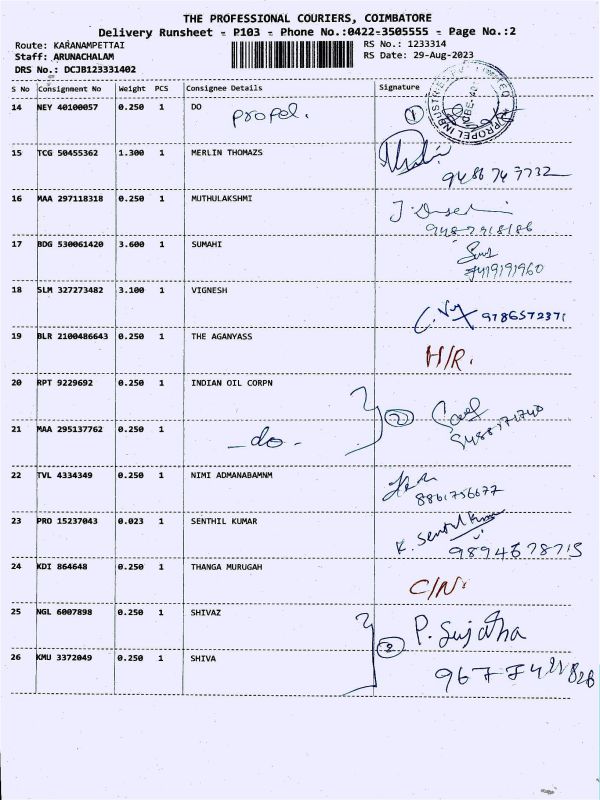 THE PROFESSIONAL COURIERS, COIMBATORE
Delivery Runsheet - P103 - Phone No.:0422-3505555 - Page No.:2
Route: KARANAMPETTAI RS No.: 1233314
Staff: ARUNACHALAM RS Date: 29-Aug-2023
DRS No.: DCJB123331402
S No Consignment No Weight PCS Consignee Details Signature
14 NEY 40100057 0.250 1 DO 1
propel.
15 TCG 50455362 1.300 1 MERLIN THOMAZS
9486 74 7732
16 MAA 297118318 0.250 1 MUTHULAKSHMI
9487918186
17 BDG 530061420 3.600 1 SUMAHI
7419191960
18 SLM 327273482 3.100 1 VIGNESH
9786572371
19 BLR 2100486643 0.250 1 THE AGANYASS
H/R.
20 RPT 9229692 0.250 1 INDIAN OIL CORPN
2
21 MAA 295137762 0.250 1 -do-
22 TVL 4334349 0.250 1 NIMI ADMANABAMNM
8861756677
23 PRO 15237043 0.023 1 SENTHIL KUMAR
K. Senthil Kumar
9894678715
24 KDI 864648 0.250 1 THANGA MURUGAH
C/N.
25 NGL 6007898 0.250 1 SHIVAZ
P. Sujatha
2
26 KMU 3372049 0.250 1 SHIVA